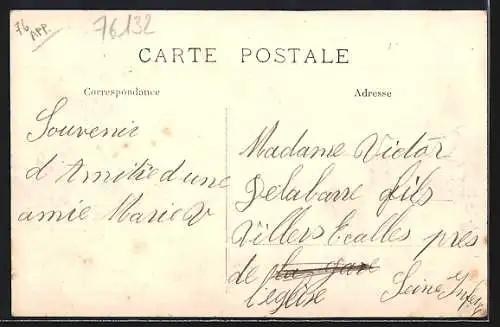 76 APP.
76132
CARTE POSTALE
Correspondance
Adresse
Souvenir
d'Amitié d'une
amie Marie V
Madame Victor
Delabarre fils
Villers Ecalles près
de la gare
l'église
Seine Infer